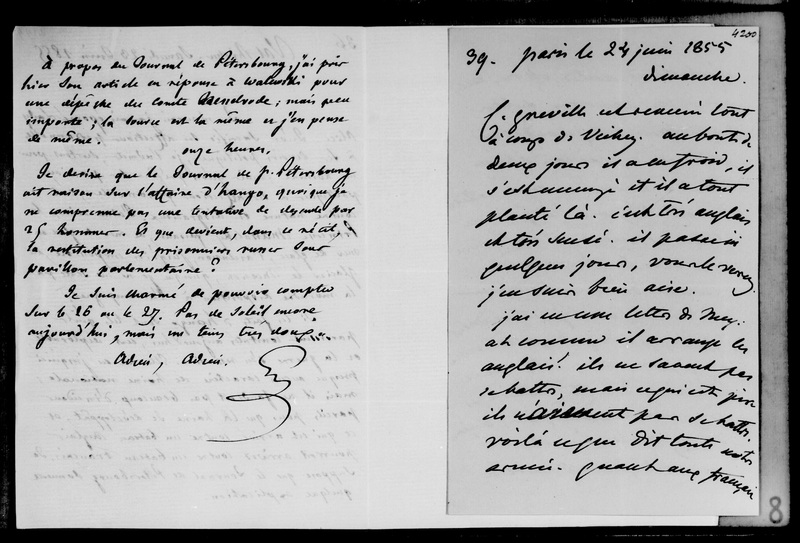 à propos du Journal de Pétersbourg, j'ai pris
hier son article en réponse à Walewski pour
une dépêche du Comte Nesselrode ; mais peu
importe ; la source est la même et j'en pense
de même.
onze heures.
Je desire que le Journal de St. Pétersbourg
ait raison sur l'affaire d'Hango, quoique je
ne comprenne pas une tentative de descente par
25 hommes. Et que devient, dans ce récit,
la restitution des prisonniers russes sous
pavillon parlementaire ?
Je suis charmé de pouvoir compter
sur le 26 ou le 27. Pas de soleil encore
aujourd'hui, mais un tems très doux.
Adieu, Adieu.
4200
39. paris le 24 juin 1855
dimanche.
C. Greville est revenu tout
à coup de Vichy. au bout de
deux jours il a eu froid, il
s'est ennuyé et il a tout
planté là. c'est très anglais
et très sensé. il passe ici
quelques jours, vous le verrez.
j'en suis bien aise.
j'ai eu une lettre de Mey.
ah comme il arrange les
anglais! ils ne savent pas
se battre, mais ce qui est pire
ils n'aiment pas se battre.
voilà ce que dit toute notre
armée. quant aux français
8